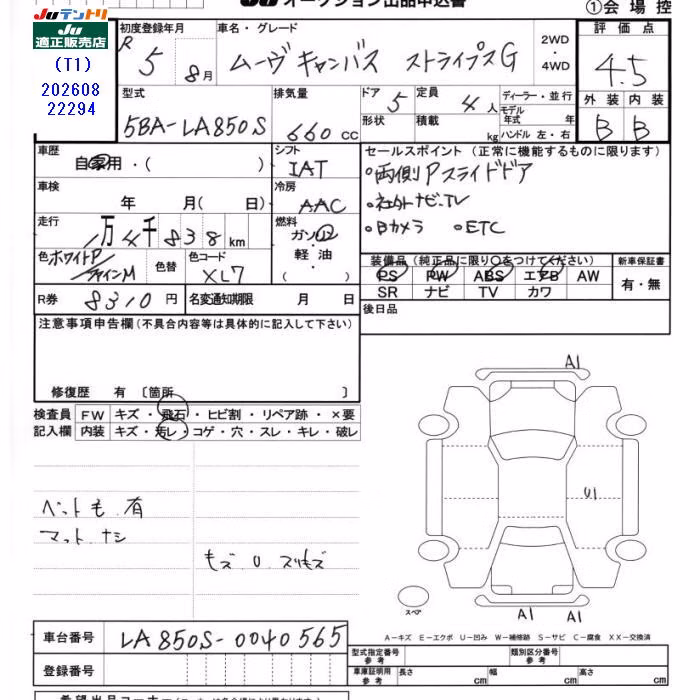 Juテントリ
Ju
適正販売店
(T1)
202608
22294
①会場控
初度登録年月
R 5 8月
車名・グレード
ムーヴキャンバス ストライプスG
2WD
・
4WD
評価点
4.5
外装 内装
B B
型式
5BA-LA850S
排気量
660cc
ドア 5
定員 4人
形状
積載 kg
ディーラー・並行
モデル
年式 年
ハンドル 左・右
車歴
自家用・( )
シフト
IAT
セールスポイント (正常に機能するものに限ります)
両側Pスライドドア
社外ナビ.TV
Bカメラ ETC
車検
年 月( 日)
冷房
AAC
走行
1万4千838km
燃料
ガソリン
・
軽油
( )
色 ホワイトP/シャインM
色替
色コード
XL7
装備品 (純正品に限り〇をつけてください)
PS PW ABS エアB AW
SR ナビ TV カワ
新車保証書
有・無
R券 8310円
名変通知期限 月 日
後日品
注意事項申告欄(不具合内容等は具体的に記入して下さい)
修復歴 有 〔箇所 〕
検査員 FW キズ・飛石・ヒビ割・リペア跡・×要
記入欄 内装 キズ・汚レ・コゲ・穴・スレ・キレ・破レ
ペット毛 有
マット ナシ
A1
U1
スペア
A1 A1
A-キズ E-エクボ U-凹み W-補修跡 S-サビ C-腐食 XX-交換済
車台番号 LA850S-0040565
登録番号
型式指定番号
参考
類別区分番号
参考
車庫証明用
参考
長さ cm 幅 cm 高さ cm